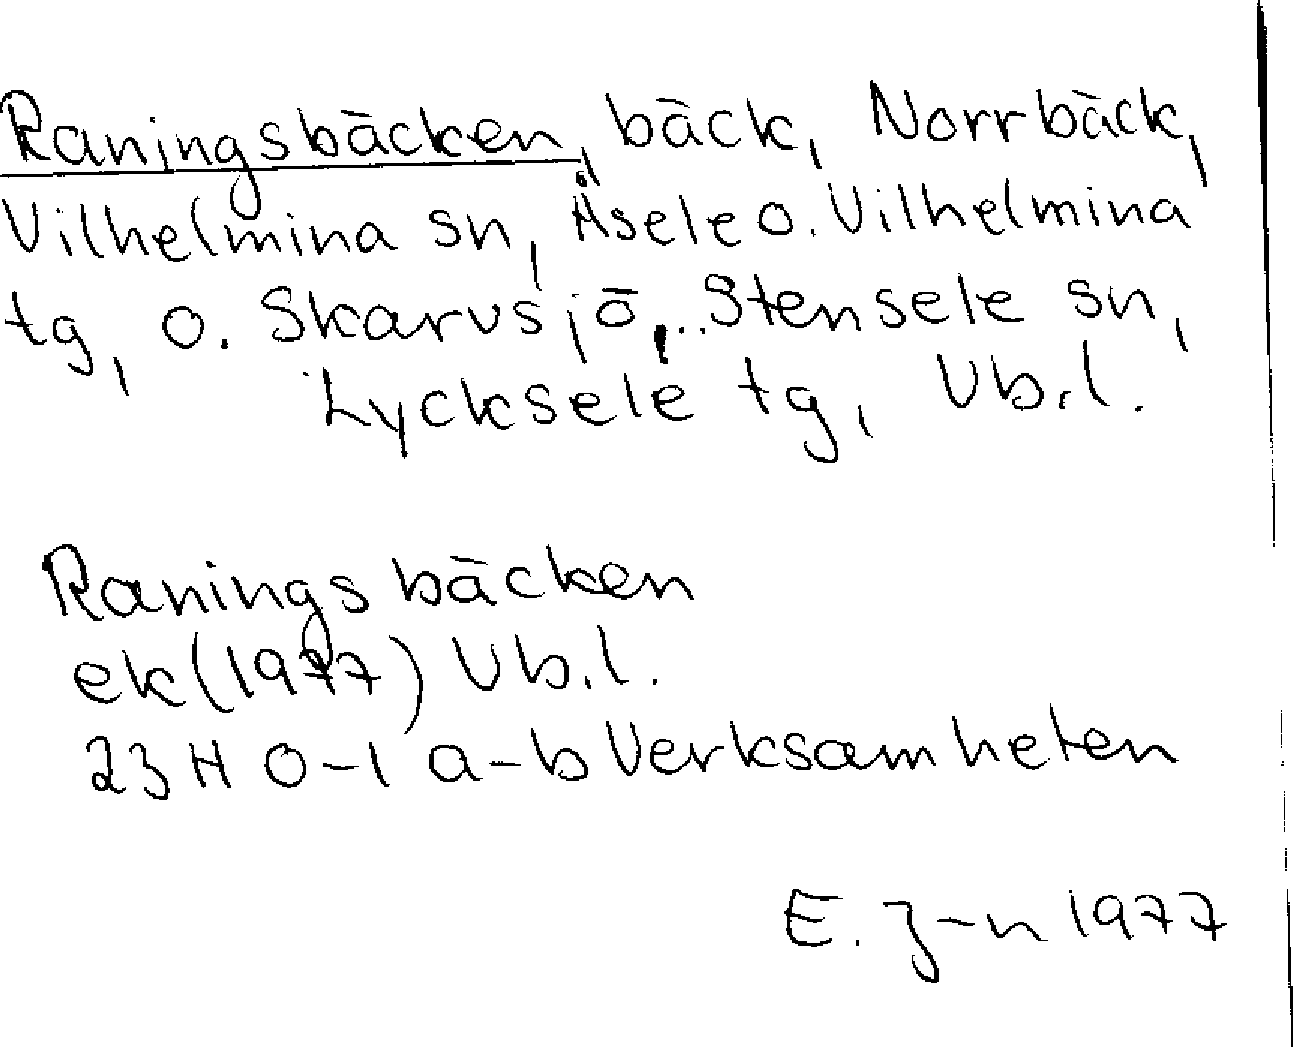 Raningsbäcken, bäck, Norrbäck,
Vilhelmina sn, Åsele o. Vilhelmina
tg, o. Skarvsjö, Stensele sn,
Lycksele tg, Vb.l.
Raningsbäcken
ek (1977) Vb.l.
23 H 0-1 a-b Verksamheten
E. J-n 1977